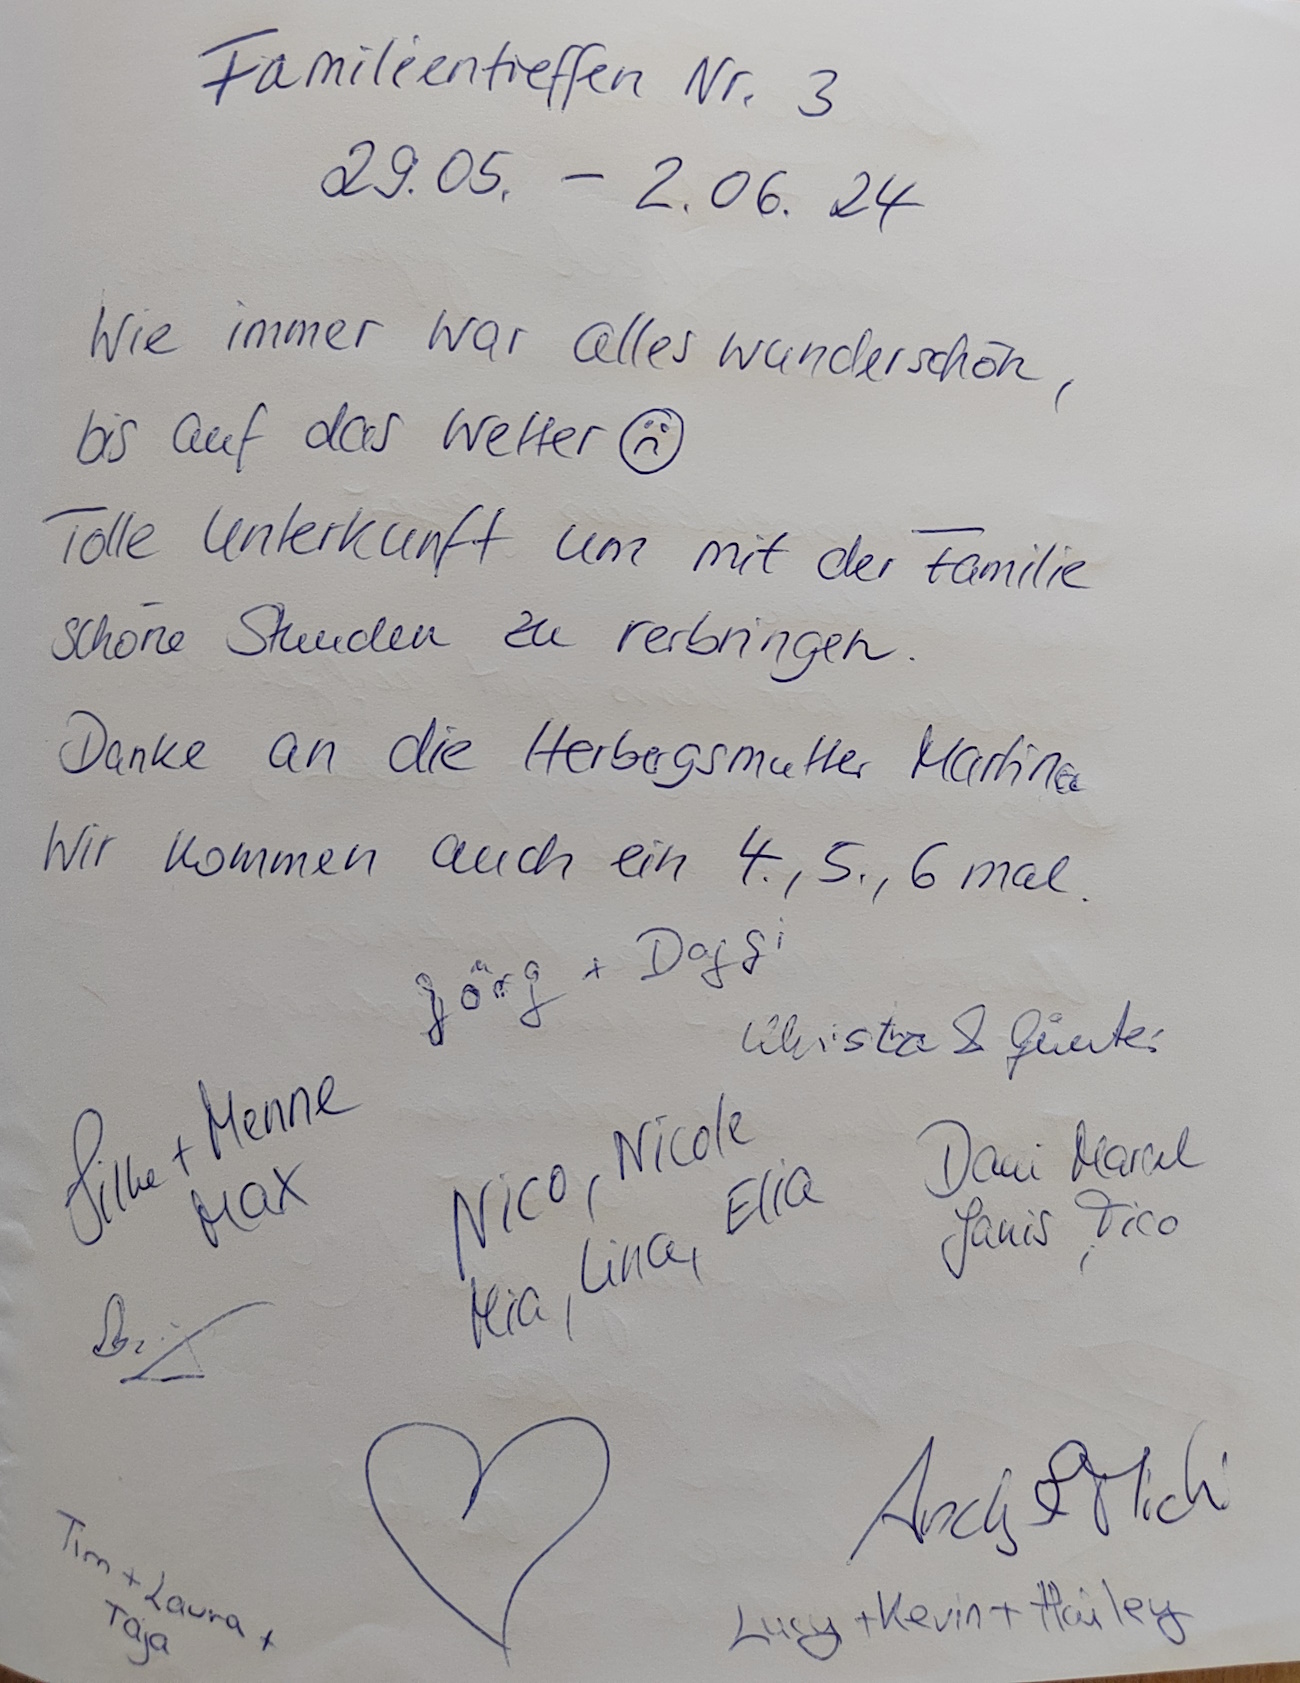 Familientreffen Nr. 3
29.05. – 2.06. 24
Wie immer war alles wunderschön,
bis auf das Wetter
Tolle Unterkunft um mit der Familie
schöne Stunden zu verbringen.
Danke an die Herbergsmutter Martina
Wir kommen auch ein 4., 5., 6 mal.
Jörg + Daggi
Christa & Günter
Silke + Menne
Max
Nico, Nicole
Mia, Lina, Elia
Dani Marcel
Janis, Tico
Andy & Michi
Tim + Laura +
Taja
Lucy + Kevin + Hailey